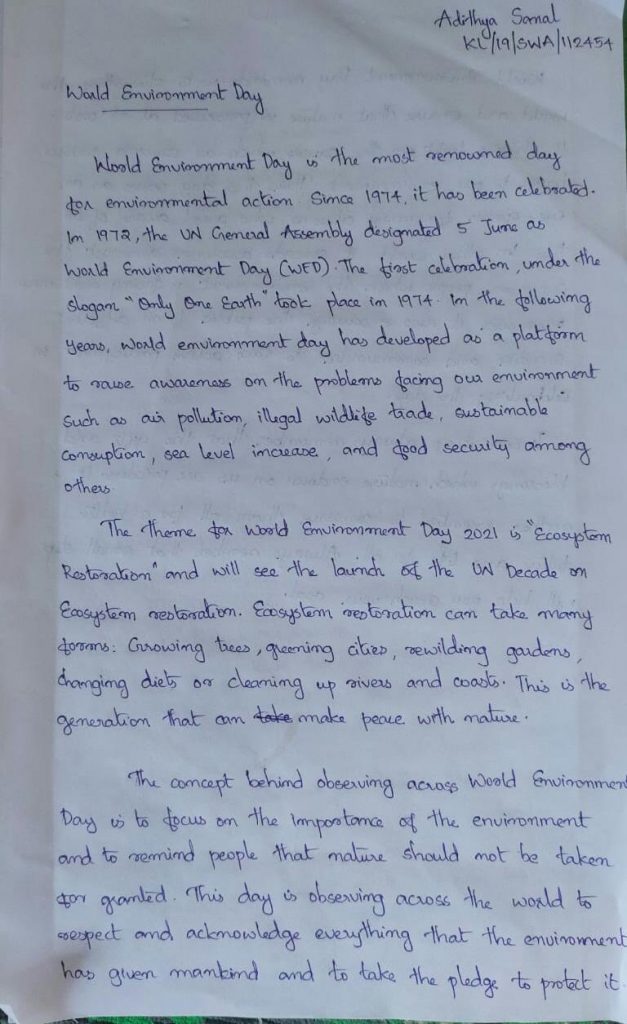 Adithya Sanal
KL/19/SWA/112454
World Environment Day
World Environment Day is the most renowned day
for environmental action. Since 1974, it has been celebrated.
In 1972, the UN General Assembly designated 5 June as
World Environment Day (WED). The first celebration, under the
slogan "Only One Earth" took place in 1974. In the following
years, world environment day has developed as a platform
to raise awareness on the problems facing our environment
such as air pollution, illegal wildlife trade, sustainable
consuption, sea level increase, and food security among
others
The theme for World Environment Day 2021 is "Ecosystem
Restoration" and will see the launch of the UN Decade on
Ecosystem restoration. Ecosystem restoration can take many
forms: Growing trees, greening cities, rewilding gardens,
changing diets or cleaning up rivers and coasts. This is the
generation that can take make peace with nature.
The concept behind observing across World Environmen
Day is to focus on the importance of the environment
and to remind people that nature should not be taken
for granted. This day is observing across the world to
respect and acknowledge everything that the environment
has given mankind and to take the pledge to protect it.